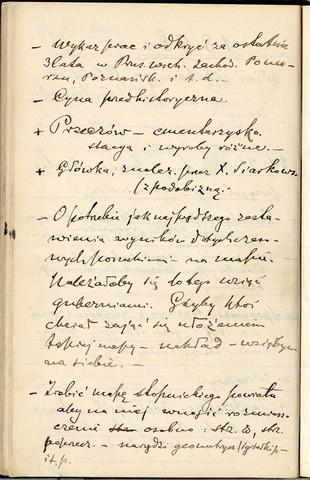 – Wykaz prac i odkryć za ostatnie
3 lata w Prus. wsch. zachod. Pomo-
rzu, Poznańsk. i t. d.
– Cyna przedhistoryczna.
+ Przeczów – cmentarzysko.
stacya i wyroby różne. –
+ Główka, znalez. przez X. Siarkows.
(z podobizną.
– O potrzebie jak najprędszego zesta-
wienia wyników dotychczaso-
wych poszukiwań – na mapie.
Należałoby się do tego wziąć
guberniami. Gdyby ktoś
chciał zająć się ułożeniem
takiej mapy – nakład – wziąłbym
na siebie. –
– Zrobić mapę stopnickiego powiatu
aby na niej wnosić rozmiesz-
czenie osobno: str.
– narzędzi geometrycz.
i t. p.